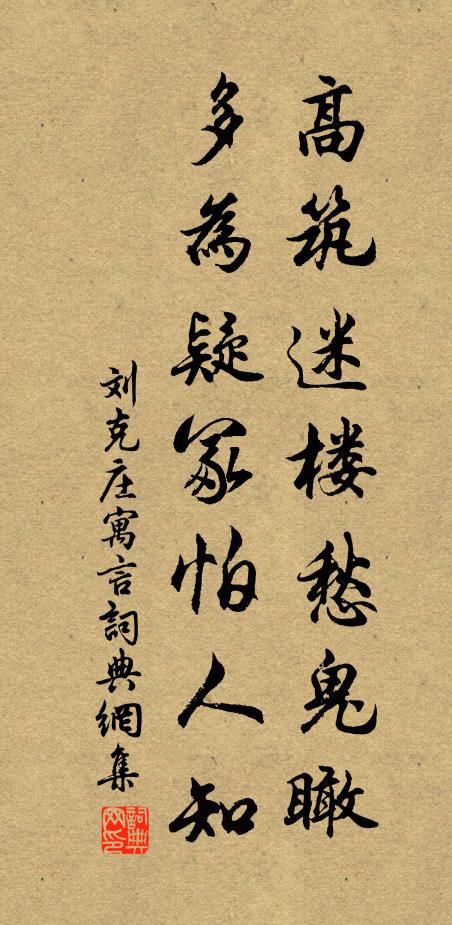 高筑迷楼愁鬼瞰
多為疑冢怕人知
刘克庄寓言詞典網集
詞典网印